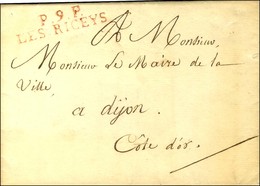 P. 9. P.
LES RICEYS
A Monsieur,
Monsieur Le Maire de la
Ville,
a dijon.
Côte d'or.